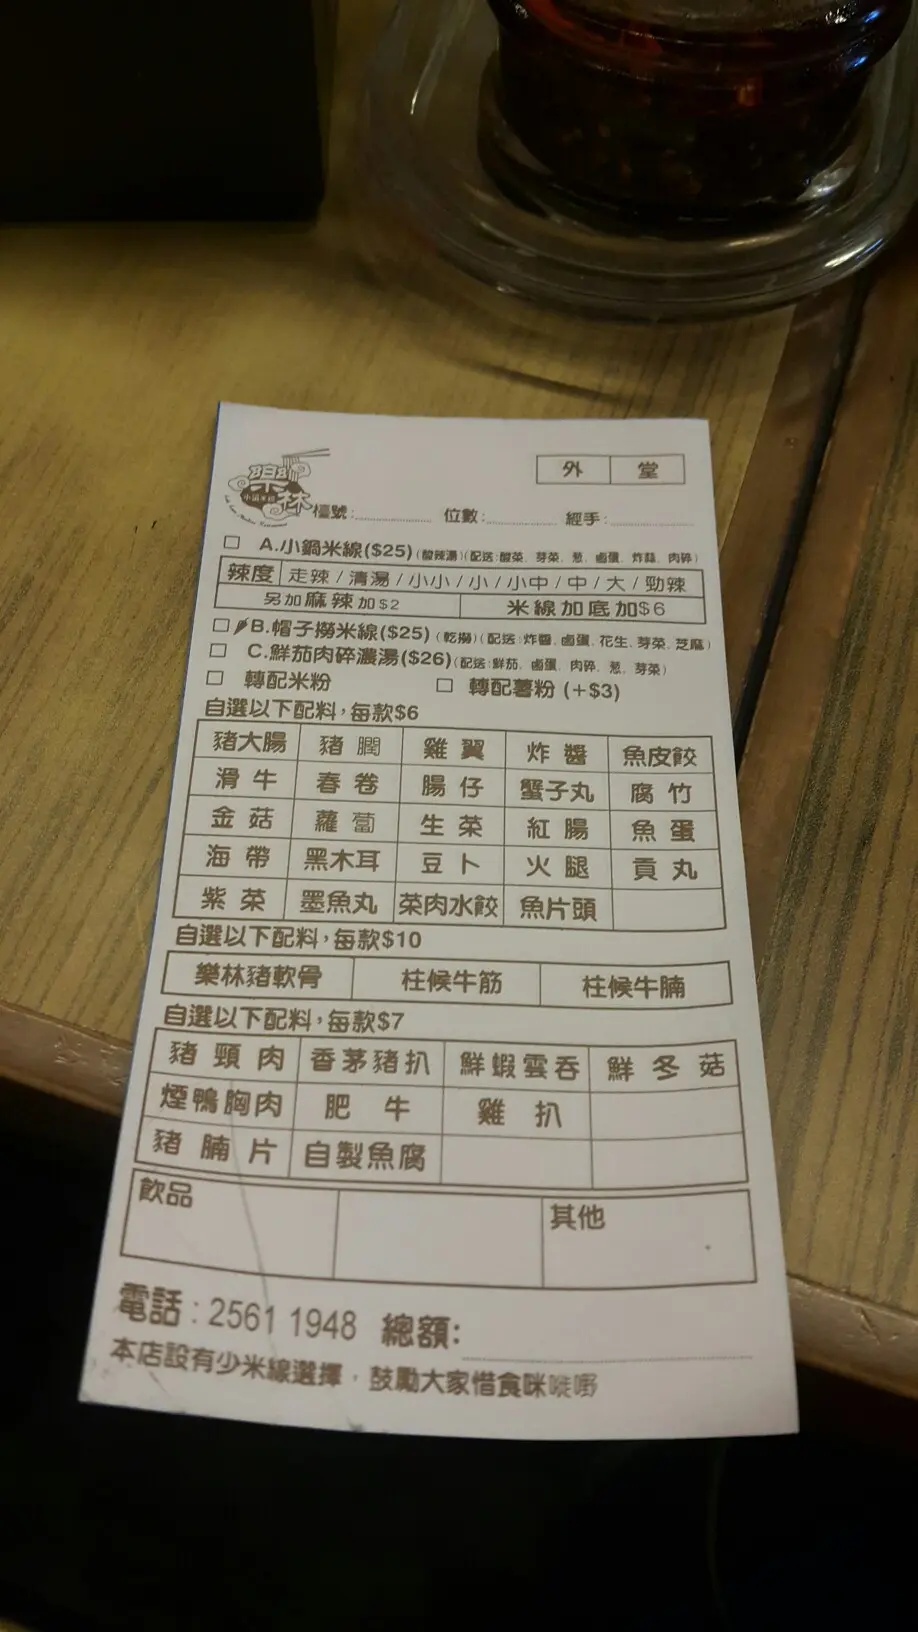 外 堂
樂林
小鍋米線
檯號: 位數: 經手:
A.小鍋米線($25)(酸辣湯)(配送:酸菜、芽菜、葱、鹵蛋、炸蒜、肉碎)
辣度 走辣/清湯/小小/小/小中/中/大/勁辣
另加麻辣加$2 米線加底加$6
B.帽子撈米線($25)(乾撈)(配送:炸醬、鹵蛋、花生、芽菜、芝麻)
C.鮮茄肉碎濃湯($26)(配送:鮮茄、鹵蛋、肉碎、葱、芽菜)
轉配米粉 轉配薯粉(+$3)
自選以下配料,每款$6
豬大腸 豬膶 雞翼 炸醬 魚皮餃
滑牛 春卷 腸仔 蟹子丸 腐竹
金菇 蘿蔔 生菜 紅腸 魚蛋
海帶 黑木耳 豆卜 火腿 貢丸
紫菜 墨魚丸 菜肉水餃 魚片頭
自選以下配料,每款$10
樂林豬軟骨 柱候牛筋 柱候牛腩
自選以下配料,每款$7
豬頸肉 香茅豬扒 鮮蝦雲吞 鮮冬菇
煙鴨胸肉 肥牛 雞扒
豬腩片 自製魚腐
飲品 其他
電話:2561 1948 總額:
本店設有少米線選擇,鼓勵大家惜食咪嘥嘢